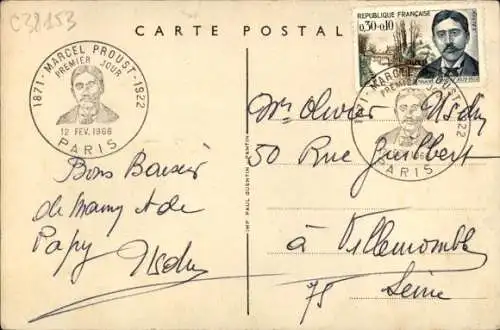 C38153
CARTE POSTALE
REPUBLIQUE FRANÇAISE
0,30+0,10
1871 - MARCEL PROUST - 1922
PREMIER JOUR
12 FEV. 1966
PARIS
MARCEL PROUST
PREMIER
1922
PARIS
Mr Olivier
50 Rue Guilbert
à Villemomble
75 Seine
Bons Baisers
de Mamy et de
Papy
IMP. PAUL QUENTIN - PANTIN